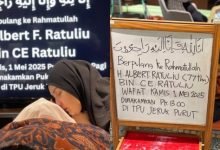 pulang ke Rahmatullah
Albert F. Ratuliu
Bin CE Ratuliu
is, 1 Mei 2025 Pagi
makamkan Pukul
di TPU Jeruk
إنا لله وإنا إليه راجعون
Berpulang ke Rahmatullah
H. ALBERT RATULIU (77TH)
BIN CE. RATULIU
WAFAT. KAMIS, 1 MEI 2025
DIMAKAMKAN PK 13.00
DI TPU JERUK PURUT